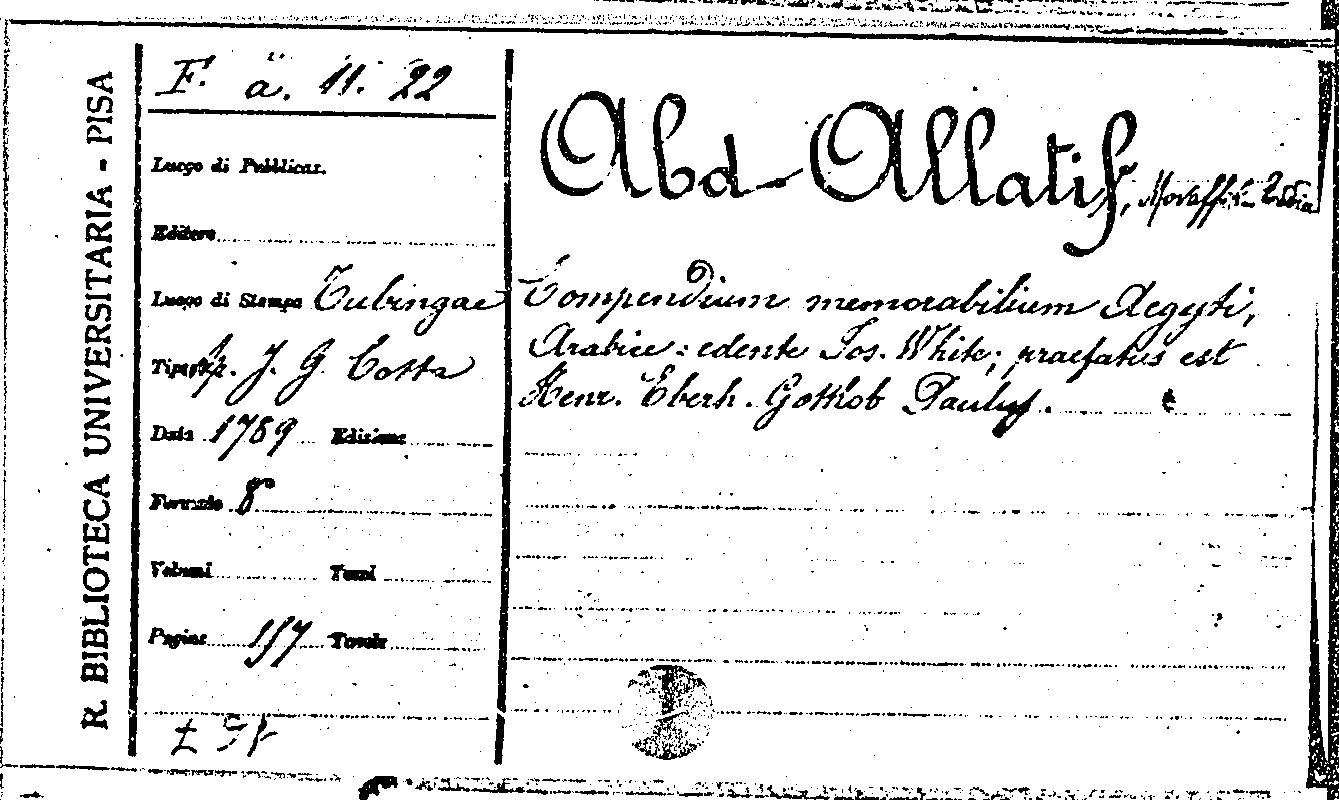 R. BIBLIOTECA UNIVERSITARIA - PISA
F. ä. 11. 22
Luogo di Pubblicaz.
Editore
Luogo di Stampa Tubingae
Tipogr. J. G. Cotta
Data 1789 Edizione
Formato 8°
Volumi Tomi
Pagine 157 Tavole
Abd-Allatif,
Compendium memorabilium Aegyti,
Arabice: edente Jos. White; praefatus est
Henr. Eberh. Gottlob Paulus.